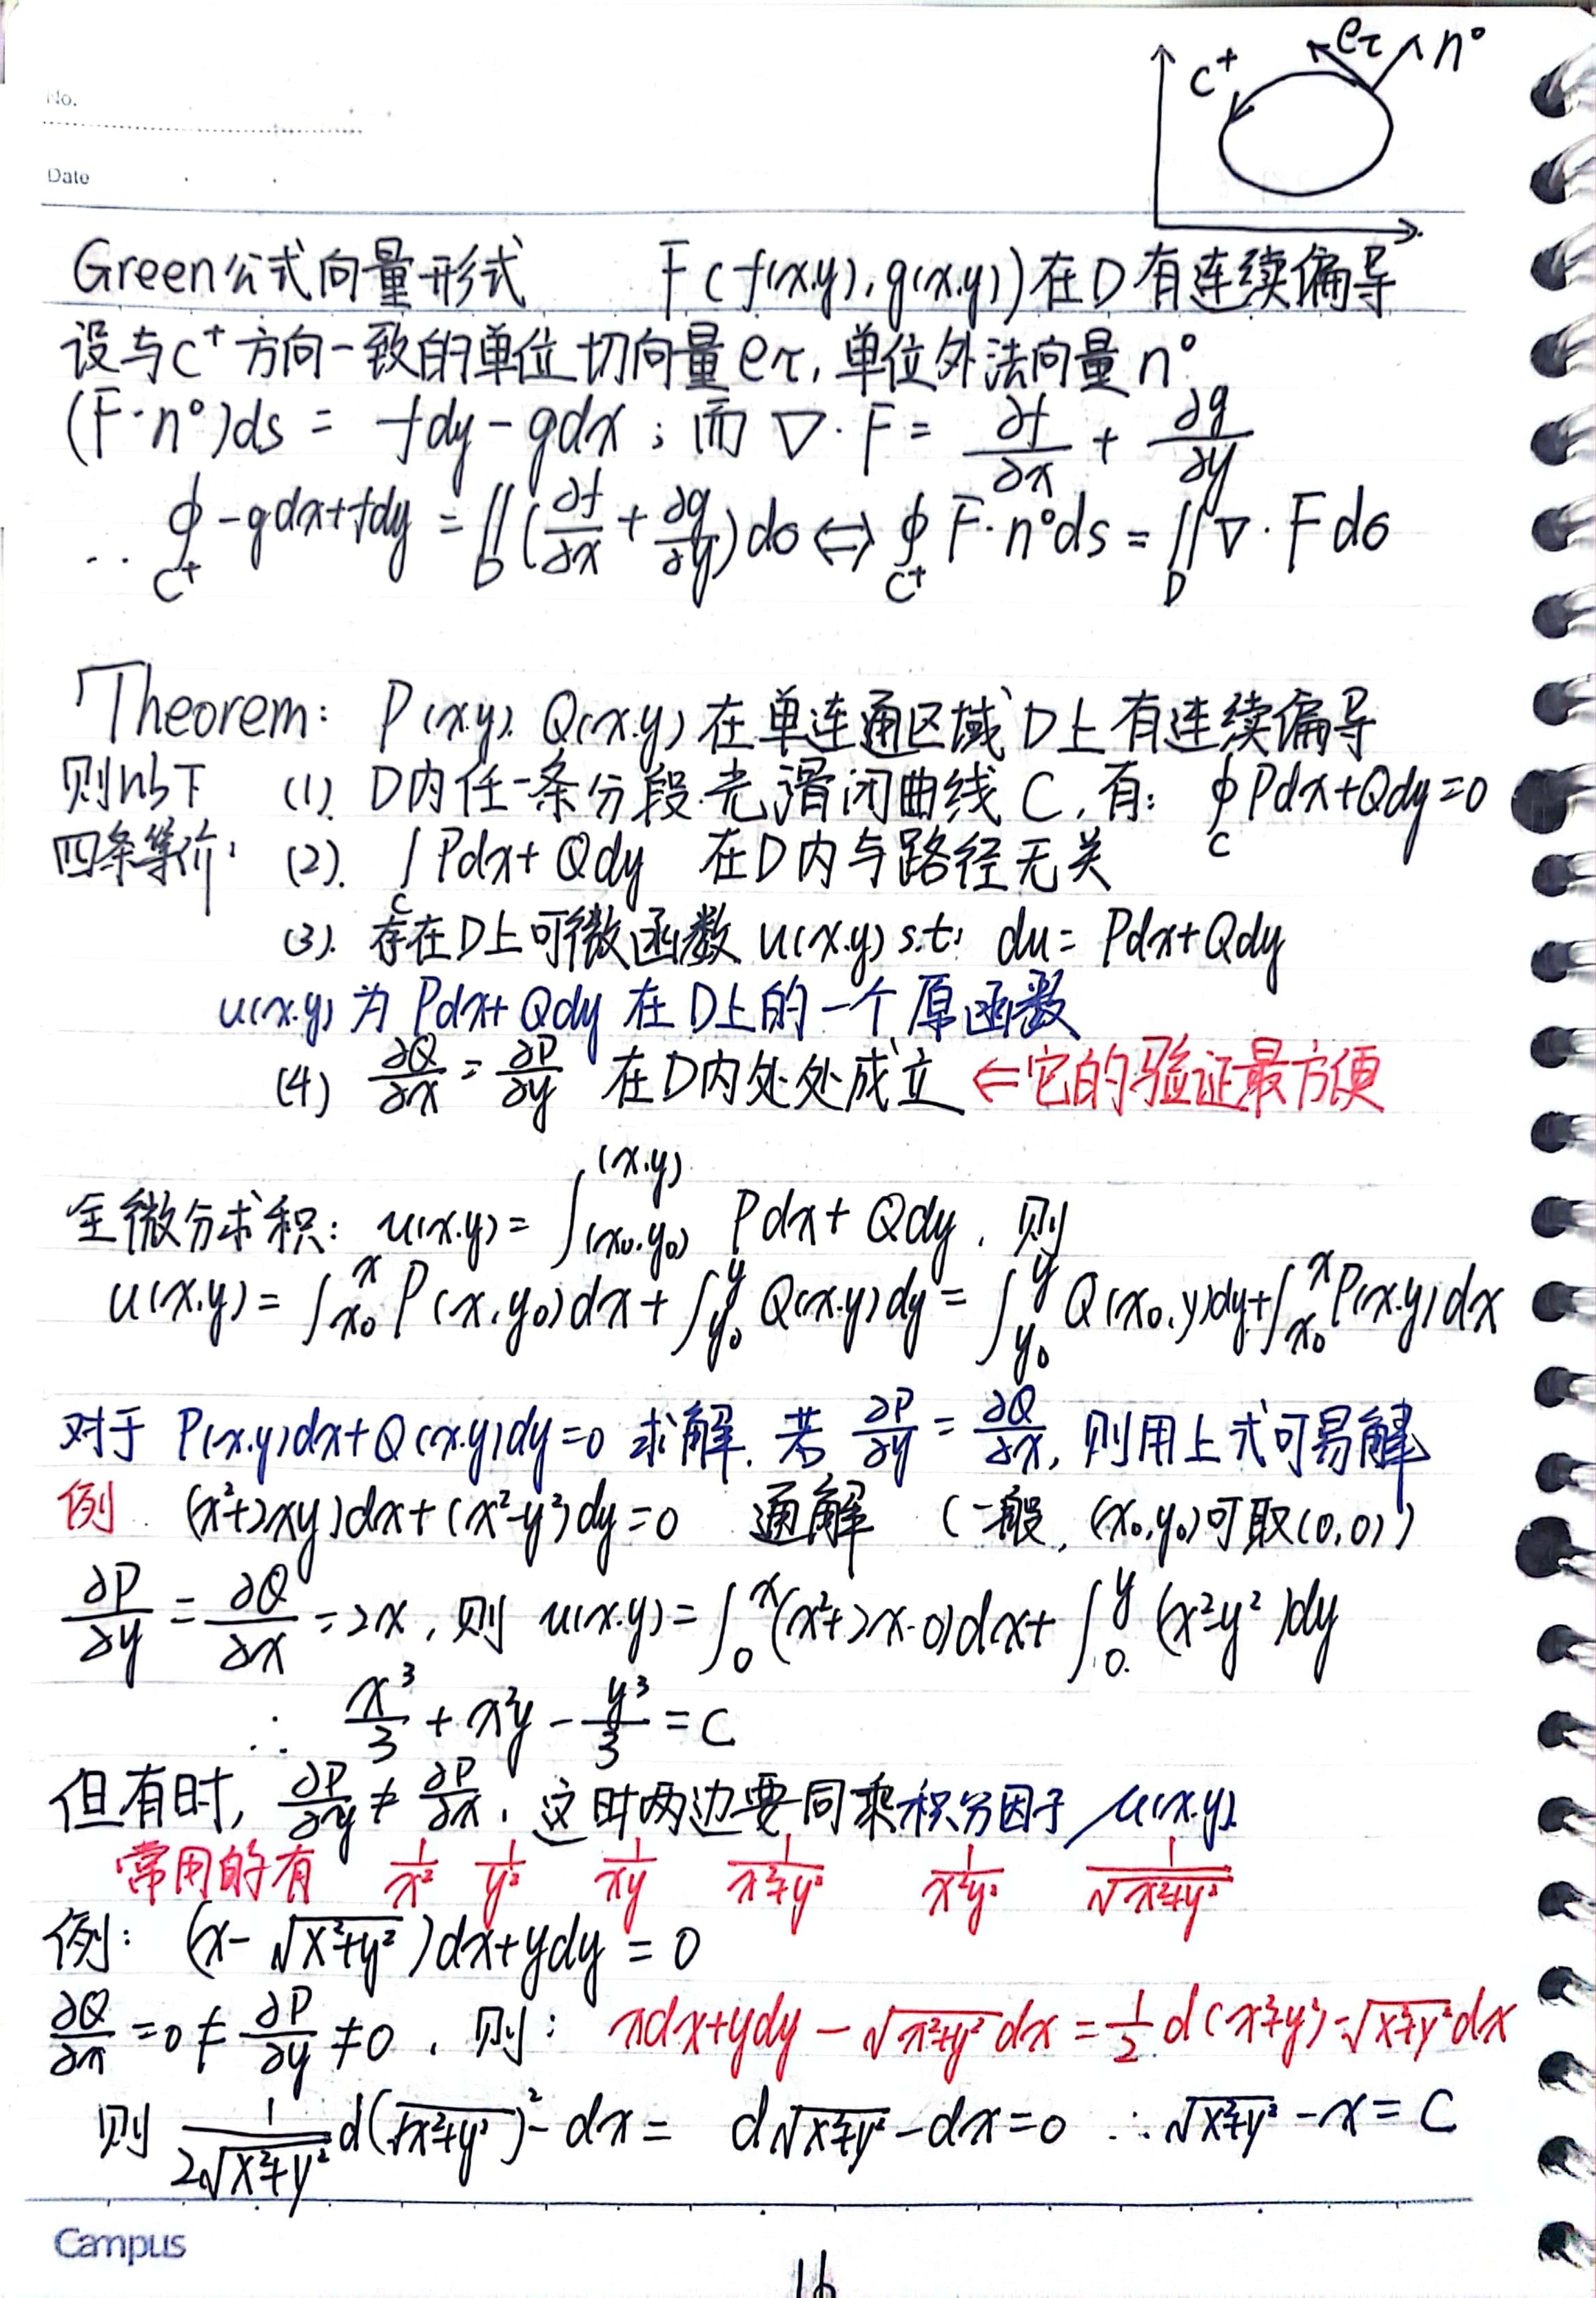 C⁺ eτ n°
No.
Date
Green公式向量形式 F(f(x,y),g(x,y))在D有连续偏导
设与C⁺方向一致的单位切向量eτ,单位外法向量n°
(F·n°)ds = fdy-gdx;而∇·F= ∂f/∂x + ∂g/∂y
∴ ∮_{C⁺} -gdx+fdy = ∬_D (∂f/∂x + ∂g/∂y)dσ ⇔ ∮_{C⁺} F·n°ds = ∬_D ∇·Fdσ
Theorem: P(x,y). Q(x,y)在单连通区域D上有连续偏导
则以下 (1). D内任一条分段光滑闭曲线C,有: ∮_C Pdx+Qdy=0
四条等价: (2). ∫_C Pdx+Qdy 在D内与路径无关
(3). 存在D上可微函数u(x,y) s.t: du= Pdx+Qdy
u(x,y)为Pdx+Qdy在D上的一个原函数
(4) ∂Q/∂x = ∂P/∂y 在D内处处成立 ⇐它的验证最方便
全微分求积: u(x,y)= ∫_{(x₀,y₀)}^{(x,y)} Pdx+Qdy, 则
u(x,y)= ∫_{x₀}^{x} P(x,y₀)dx+∫_{y₀}^{y} Q(x,y)dy = ∫_{y₀}^{y} Q(x₀,y)dy+∫_{x₀}^{x} P(x,y)dx
对于P(x,y)dx+Q(x,y)dy=0求解. 若 ∂P/∂y = ∂Q/∂x, 则用上式可易解
例 (x²+2xy)dx+(x²-y²)dy=0 通解 (一般, (x₀,y₀)可取(0,0))
∂P/∂y = ∂Q/∂x =2x, 则 u(x,y)= ∫_0^x (x²+2x·0)dx+ ∫_0^y (x²-y²)dy
∴ x³/3 + x²y - y³/3 = C
但有时, ∂P/∂y ≠ ∂P/∂x, 这时两边要同乘积分因子μ(x,y)
常用的有 1/x² 1/y² 1/xy 1/(x²+y²) 1/(x²y²) 1/√(x²+y²)
例: (x-√(x²+y²))dx+ydy = 0
∂Q/∂x =0≠ ∂P/∂y ≠0, 则: xdx+ydy-√(x²+y²)dx = 1/2 d(x²+y²)-√(x²+y²)dx
则 1/(2√(x²+y²)) d(√(x²+y²))²-dx= d√(x²+y²)-dx=0 ∴√(x²+y²)-x=C
Campus
16